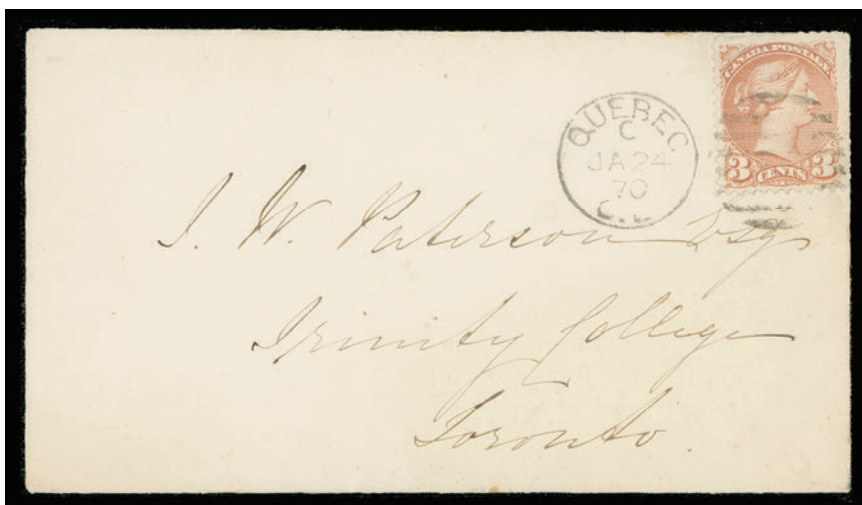 CANADA POSTAGE
3 CENTS 3
QUEBEC
C
JA 24
70
C.E.
J. W. Paterson Esq
Trinity College
Toronto.